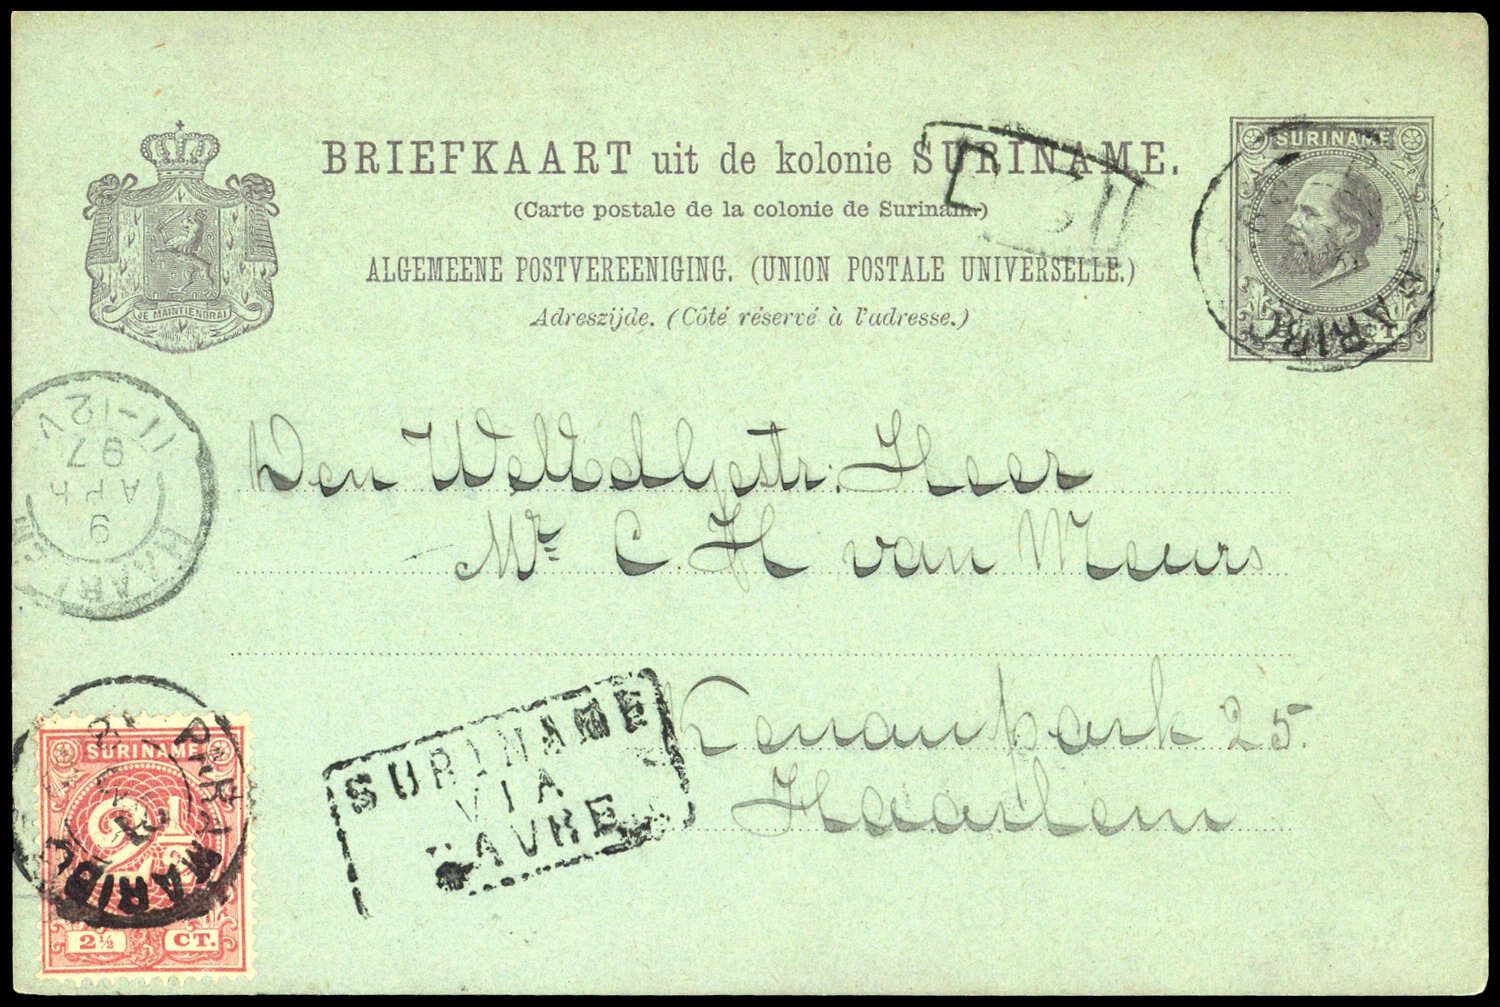 BRIEFKAART uit de kolonie SURINAME.
(Carte postale de la colonie de Suriname.)
ALGEMEENE POSTVEREENIGING. (UNION POSTALE UNIVERSELLE.)
Adreszijde. (Côté réservé à l'adresse.)
JE MAINTIENDRAI
SURINAME
CT.
PARIBO
11-12V
97
APR
9
HAARLEM
Den WelEdlgestr: Heer
Mr. C. H van Meurs
Kenaupark 25.
Haarlem
SURINAME
VIA
HAVRE
SURINAME
2½
2½ CT.
PARAMARIBO